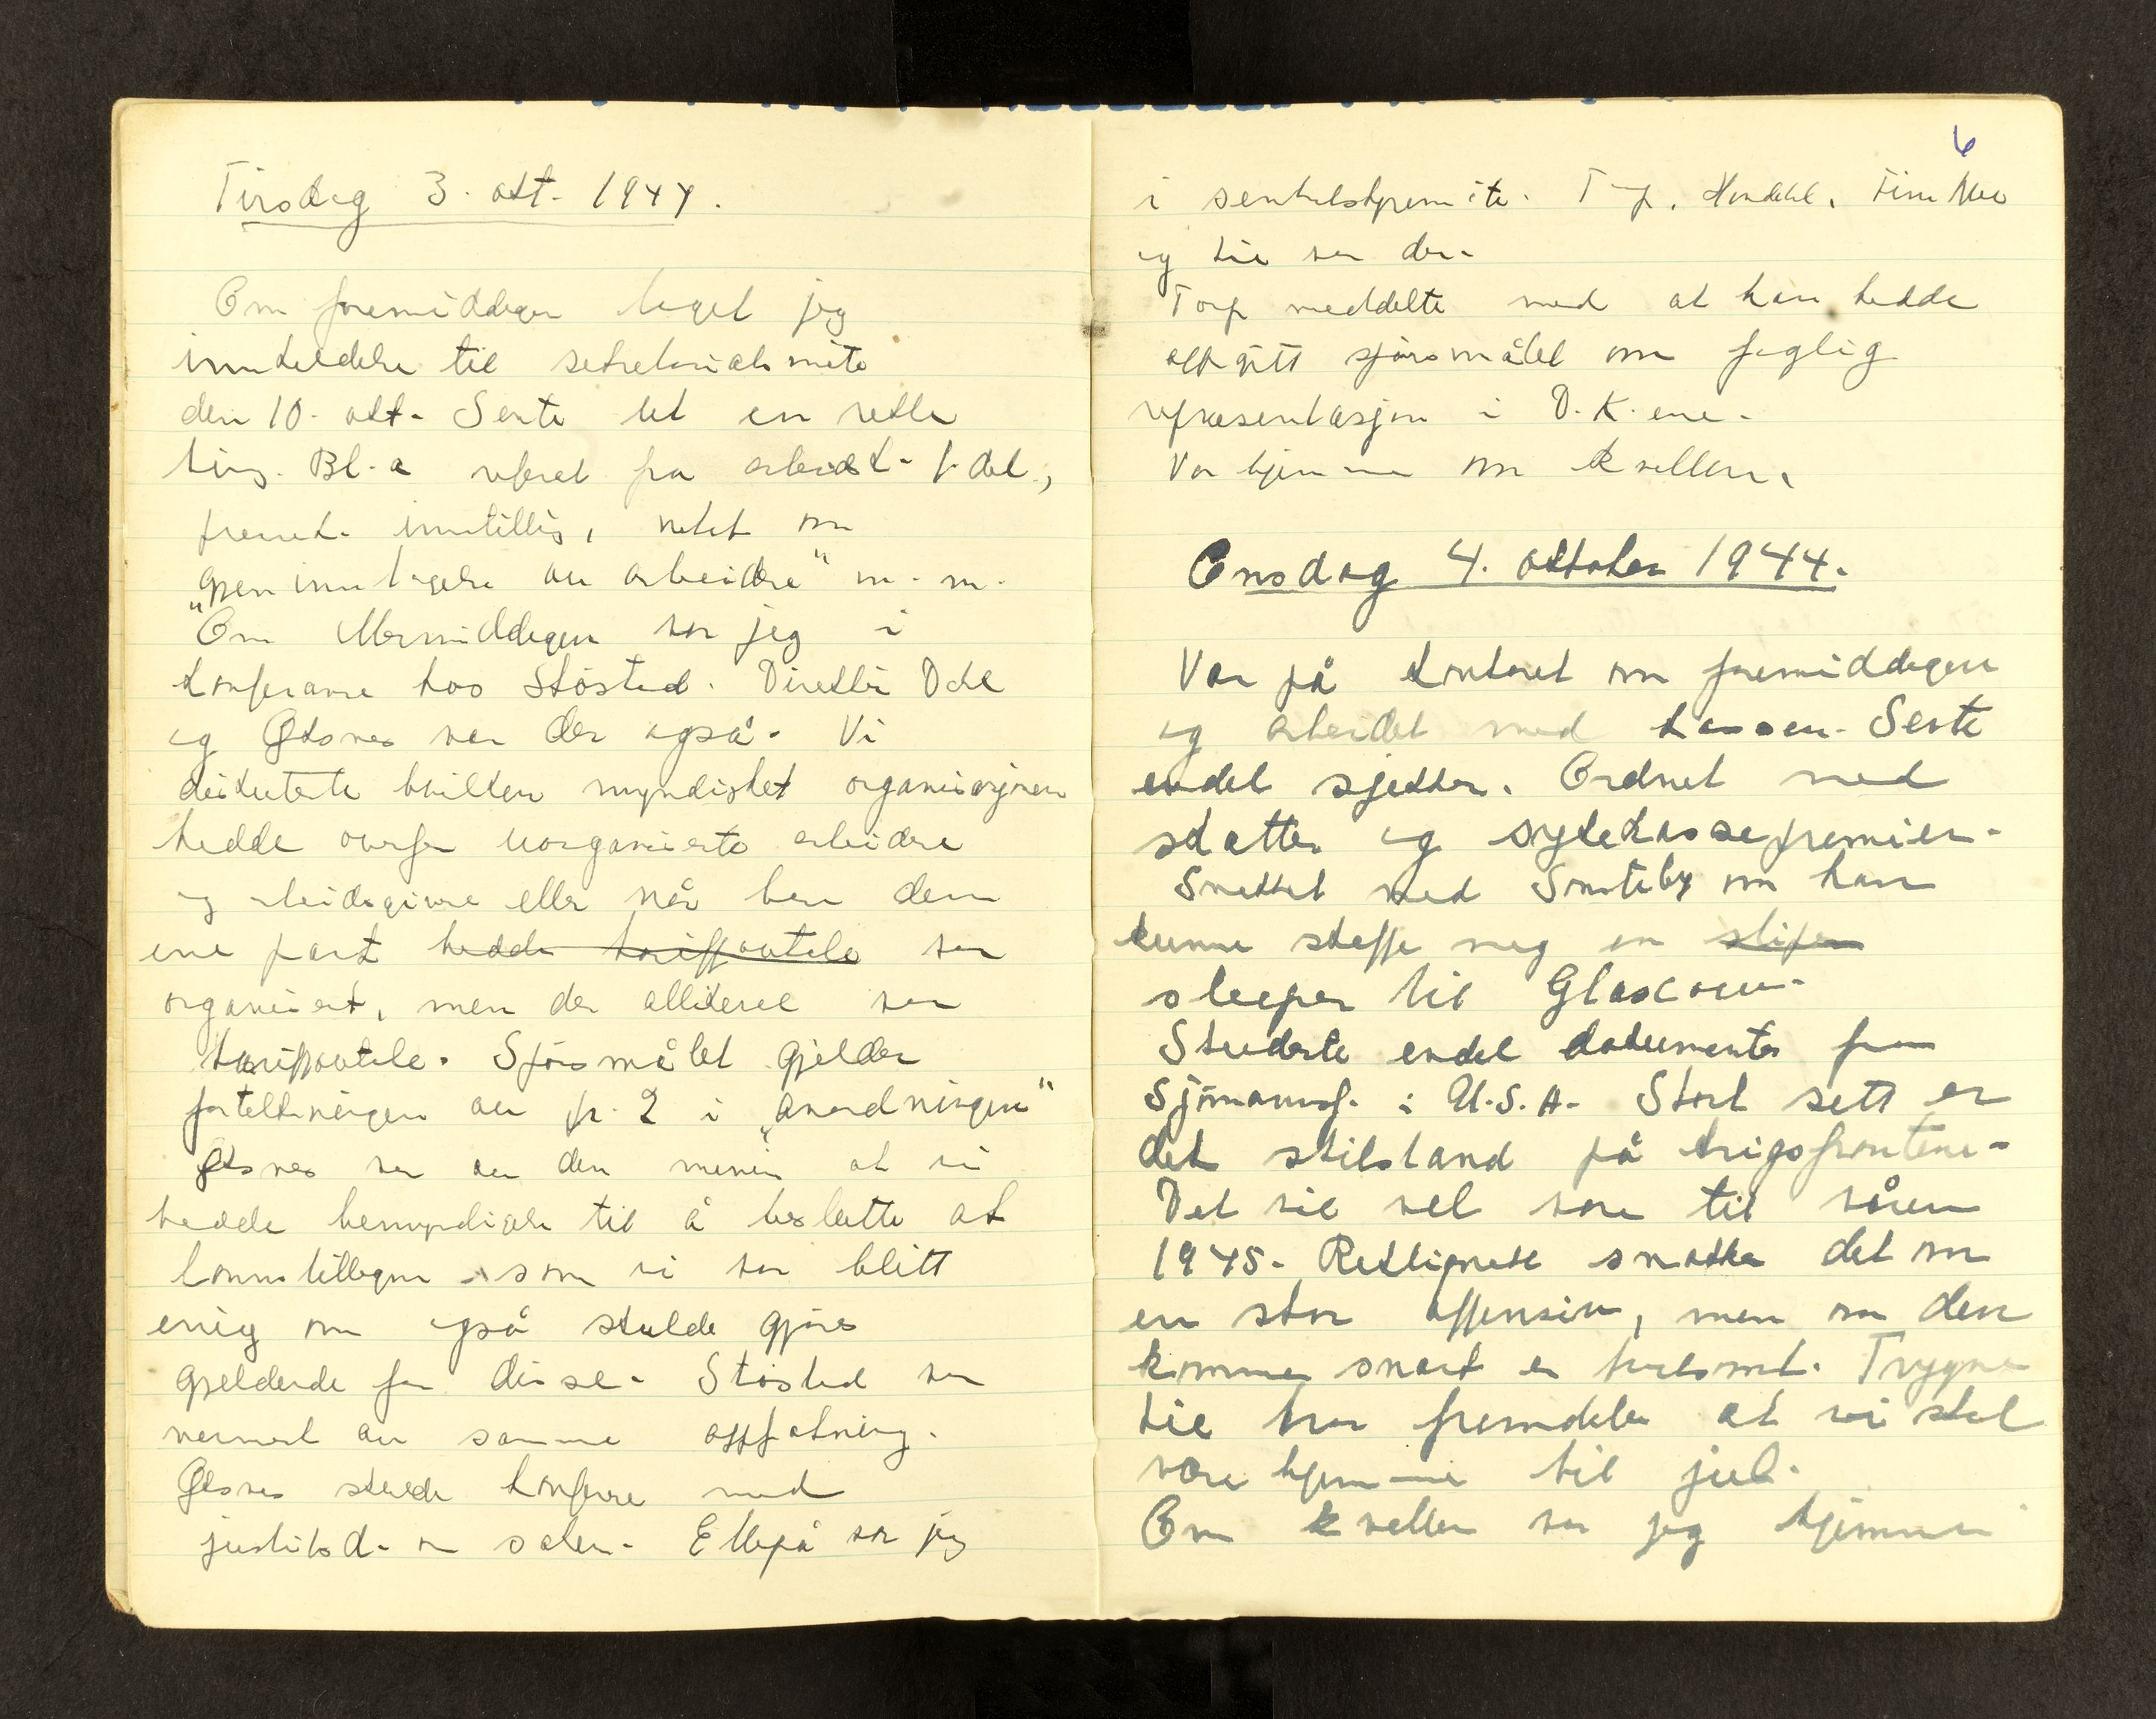 Tirsdag 3. okt. 1944.
Om formiddagen laget jeg
innkeldelse til sekretariatsmöte
den 10. okt. Sente ut en rekke
ting. Bl. a referat fra arbeidst. f. del.,
fremt. innstilling, notat om
„gjeninntagelse av arbeidere" m. m.
Om ettermiddagen var jeg i
konferanse hos Stöstad. Direktör Dahl
og Oksnes var der også. Vi
diskuterte hvilken myndighet organisasjonen
hadde overfor uorganiserte arbeidere
og arbeidsgivere eller når bare den
ene part hadde tariffavtale var
organisert, men der allikevel var
tariffavtale. Spörsmålet gjelder
fortolkningen av p. 2 i „anordningen"
Oksnes var av den mening at vi
hadde bemyndigelse til å beslutte at
lönnstilleggene som vi var blitt
enig om også skulde gjöres
gjeldende for disse. Stöstad var
nermest av samme oppfatning.
Oksnes skulde konferere med
justitsd. om saken. Etterpå var jeg
6
i sentralstyremöte. Torp, Hindahl, Finn Moe
og Lie var der.
Torp meddelte med at han hadde
oppgitt spörsmålet om faglig
representasjon i D.K. ene.
Var hjemme om kvelden.
Onsdag 4. oktober 1944.
Var på kontoret om formiddagen
og arbeidet med kassen. Sente
endel sjekker. Ordnet med
skatter og sykekassepremier.
Snakket med Smeby om han
kunne skaffe meg en slipen
sleeper til Glascow.
Studerte endel dokumenter fra
Sjömannsf. i U.S.A. Stort sett er
det stilstand på krigsfrontene.
Det vil vel vare til våren
1945. Rektignok snakker det om
en stor offensiv, men om den
kommer snart er tvilsomt. Trygve
Lie tror fremdeles at vi skal
være hjemme til jul.
Om kvelden var jeg hjemme